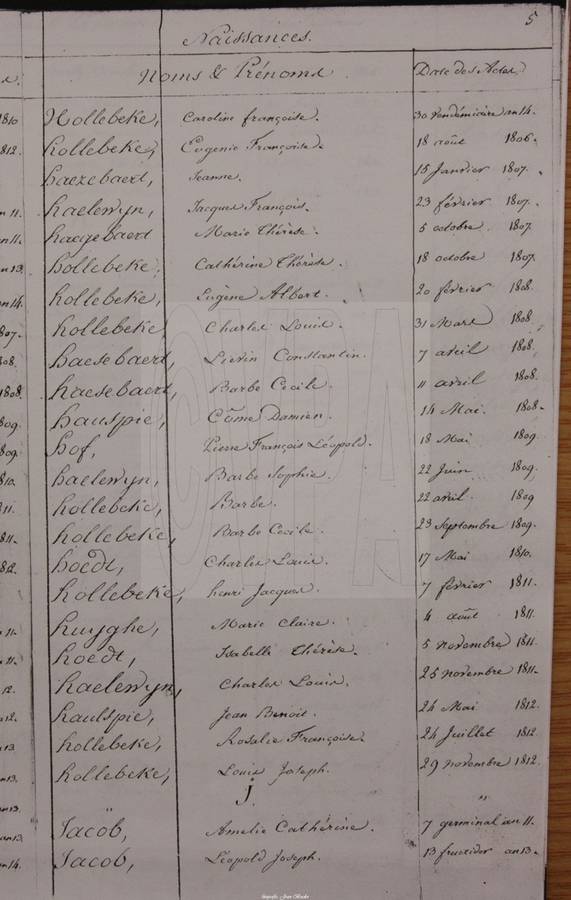 5
Naissances.
Noms & Prénoms Date des Actes
1810 Hollebeke, Caroline françoise. 30 Vendémiaire an 14.
1812. hollebeke, Eugenie Françoise. 18 août 1806.
haezebaert, Jeanne. 15 Janvier 1807.
an 11. haelewyn, Jacques François. 23 février 1807.
an 11. haezebaert Marie Thérèse. 5 octobre 1807
an 13. hollebeke, Cathérine Thérèse. 18 octobre 1807.
an 14. hollebeke, Eugène Albert. 20 février 1808
1807. hollebeke, Charles Louis. 31 Mars 1808
1808. haesebaert, Lievin Constantin. 7 avril 1808.
1808. haesebaert, Barbe Cecile. 11 avril 1808.
1809. hauspie, Côme Damien. 14 Mai. 1808.
1809. hof, Pierre François Léopold. 18 Mai 1809
1810. haelewyn, Barbe Sophie. 22 Juin 1809.
1811. hollebeke, Barbe. 22 avril 1809
1811. hollebeke, Barbe Cecile. 23 Septembre 1809.
1812. hoedt, Charles Louis. 17 Mai 1810.
hollebeke, henri Jacques. 7 février 1811.
an 11. huyghe, Marie Claire. 4 août 1811.
an 11. hoedt, Isabelle Thérèse. 5 novembre 1811
12. haelewyn, Charles Louis. 25 novembre 1811.
an 12. haulspie, Jean Benoit. 24 Mai 1812.
an 13 hollebeke, Rosalie Françoise 24 Juillet 1812.
an 13. hollebeke, Louis Joseph. 29 novembre 1812.
J.
an 13. " "
an 13. Jacob, Amelie Cathérine. 7 germinal an 11.
an 14. Jacob, Léopold Joseph. 13 fructidor an 13.